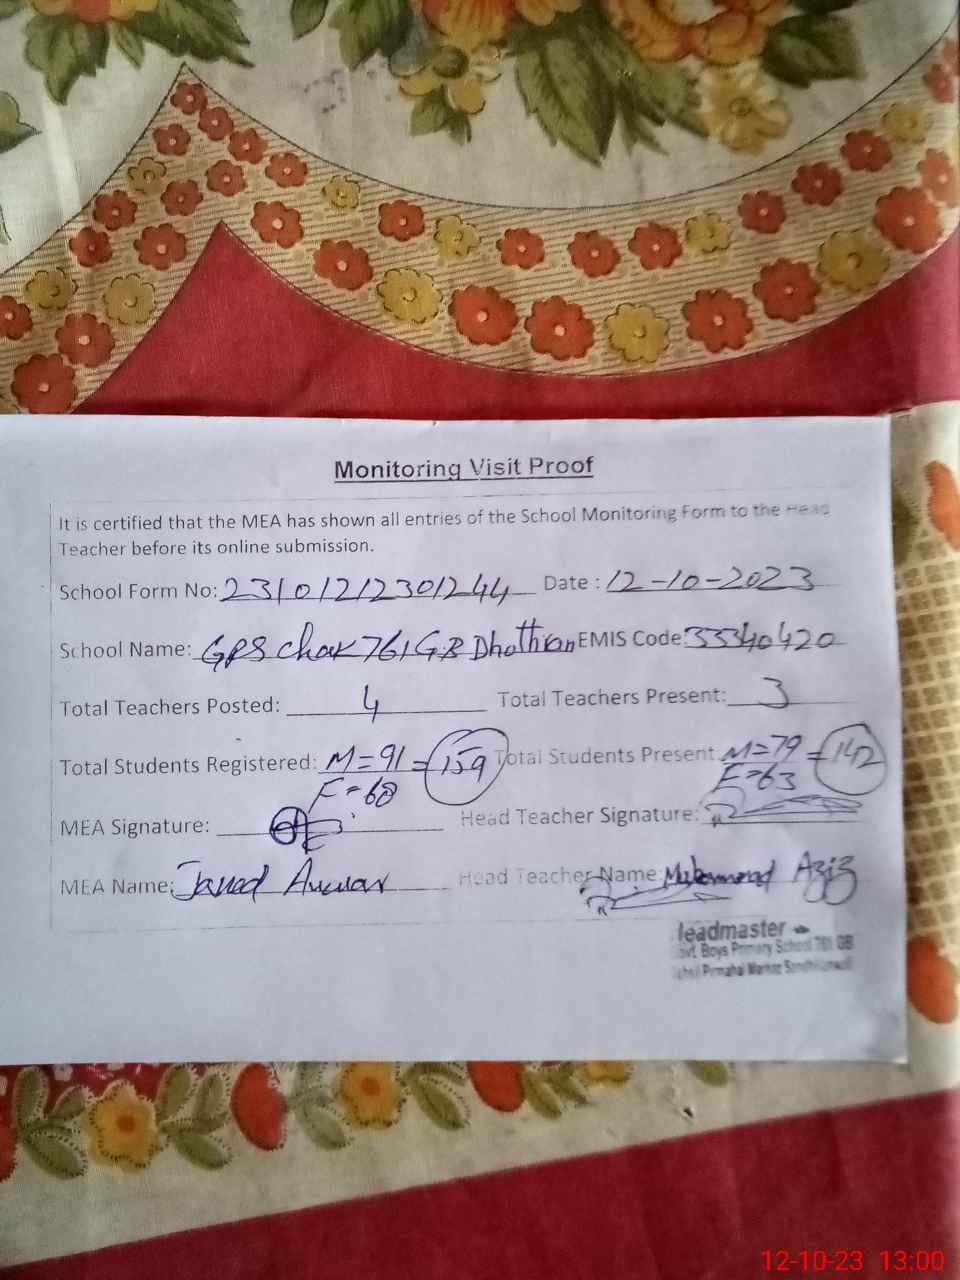 Monitoring Visit Proof
It is certified that the MEA has shown all entries of the School Monitoring Form to the Head
Teacher before its online submission.
School Form No: 23101212301244 Date: 12-10-2023
School Name: GPS Chak 761 GB Dhothran EMIS Code: 33340420
Total Teachers Posted: 4 Total Teachers Present: 3
Total Students Registered: M=91 = 159 Total Students Present: M=79 = 142
F=68 F=63
MEA Signature: Head Teacher Signature:
MEA Name: Javed Anwar Head Teacher Name: Muhammad Aziz
Headmaster
Govt. Boys Primary School 761 GB
Pirmahal Markaz
12-10-23 13:00